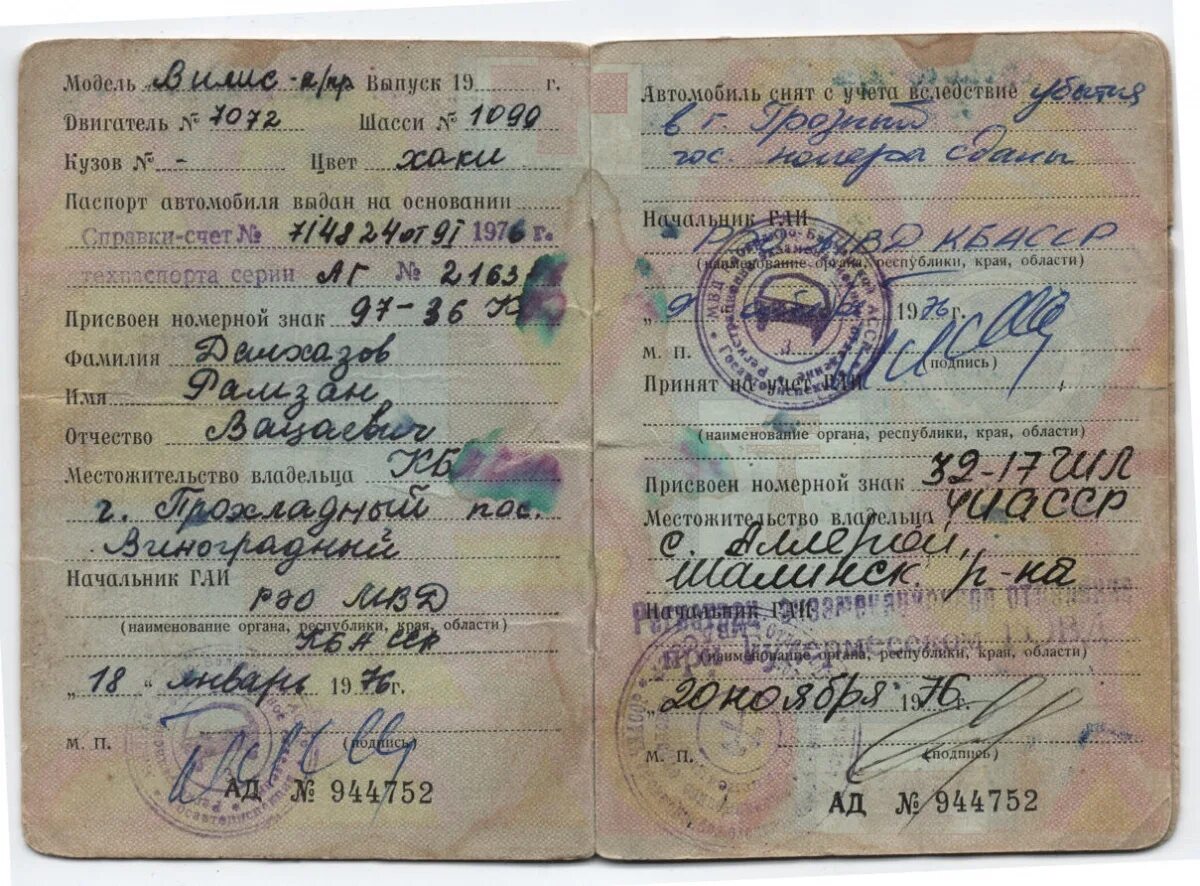 Модель Вилис-п/пр Выпуск 19 г.
Двигатель № 7072 Шасси № 1090
Кузов № - Цвет хаки
Паспорт автомобиля выдан на основании
Справки-счет № 714824 от 9/I 1976 г.
техпаспорта серии АГ № 2163
Присвоен номерной знак 97-36 К
Фамилия
Имя Рамзан
Отчество Вацаевич
Местожительство владельца КБ
г. Прохладный пос.
Виноградный
Начальник ГАИ
РЭО МВД
(наименование органа, республики, края, области)
КБАССР
„18“ январь 1976 г.
М. П. (подпись)
АД № 944752
Автомобиль снят с учета вследствие убытия
в г. Грозный
гос. номера сданы
Начальник ГАИ
МВД КБАССР
(наименование органа, республики, края, области)
„9 1976 г.
М. П. (подпись)
Принят на учет ГАИ
(наименование органа, республики, края, области)
Присвоен номерной знак 32-17 ЧИЛ
Местожительство владельца ЧИАССР
с. Аллерой,
Шалинск. р-на
Начальник ГАИ
(наименование органа, республики, края, области)
„20 ноября 1976 г.
М. П. (подпись)
АД № 944752